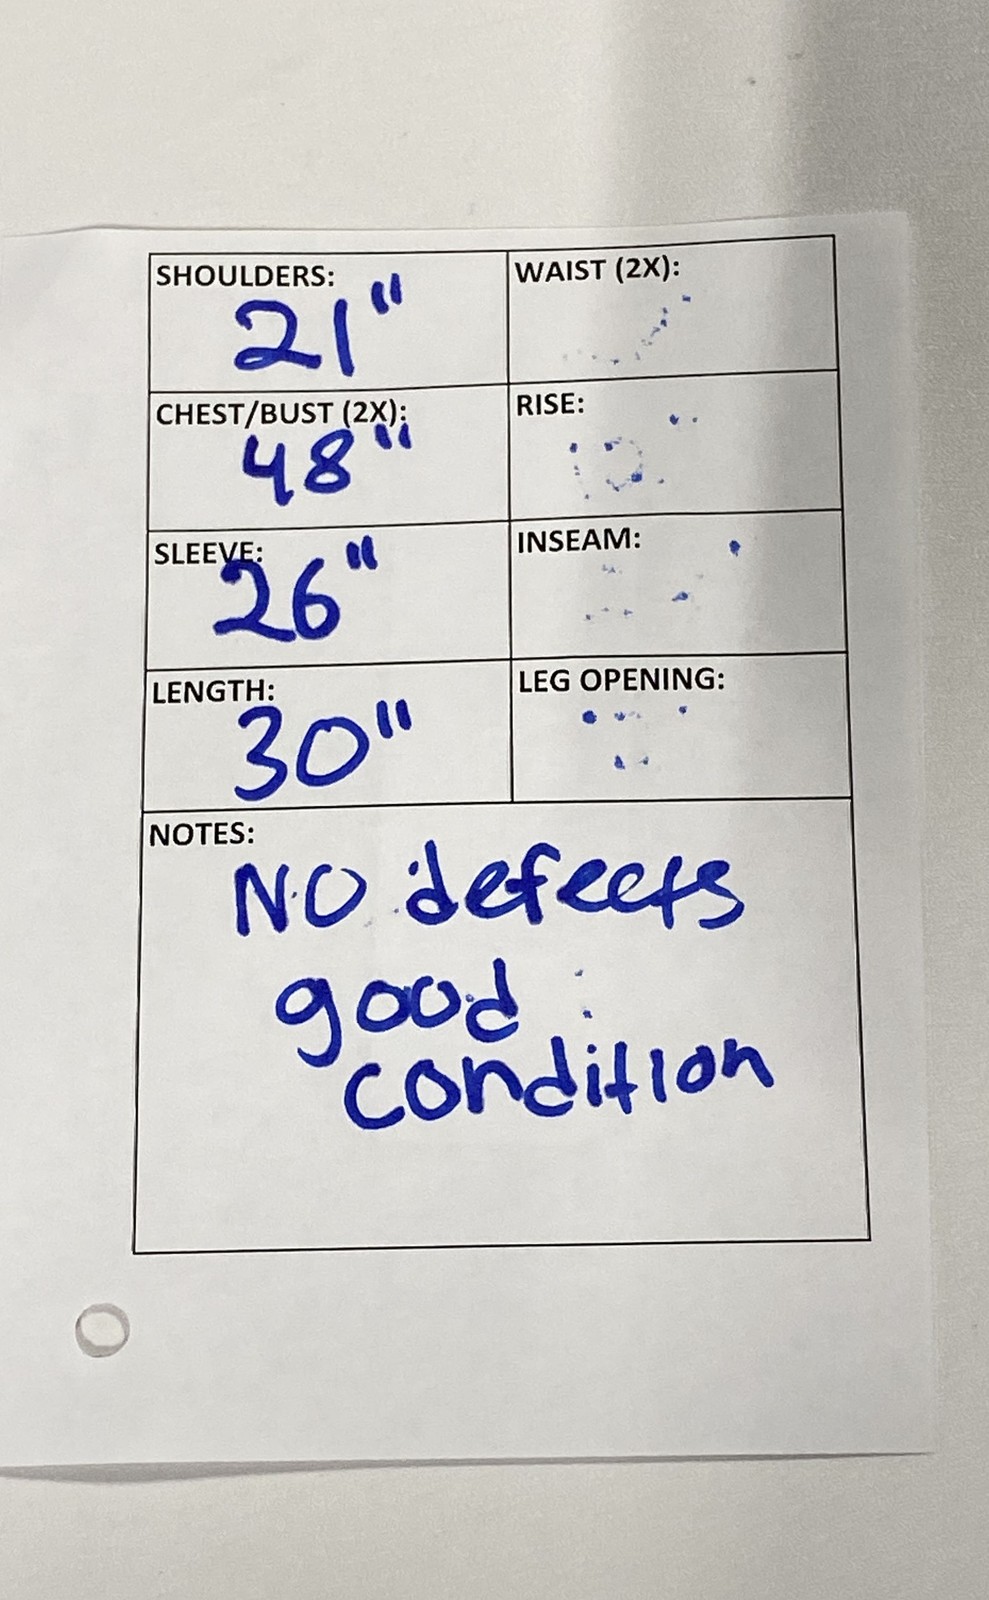 SHOULDERS:
21"
WAIST (2X):
CHEST/BUST (2X):
48"
RISE:
SLEEVE:
26"
INSEAM:
LENGTH:
30"
LEG OPENING:
NOTES:
NO defects
good
condition